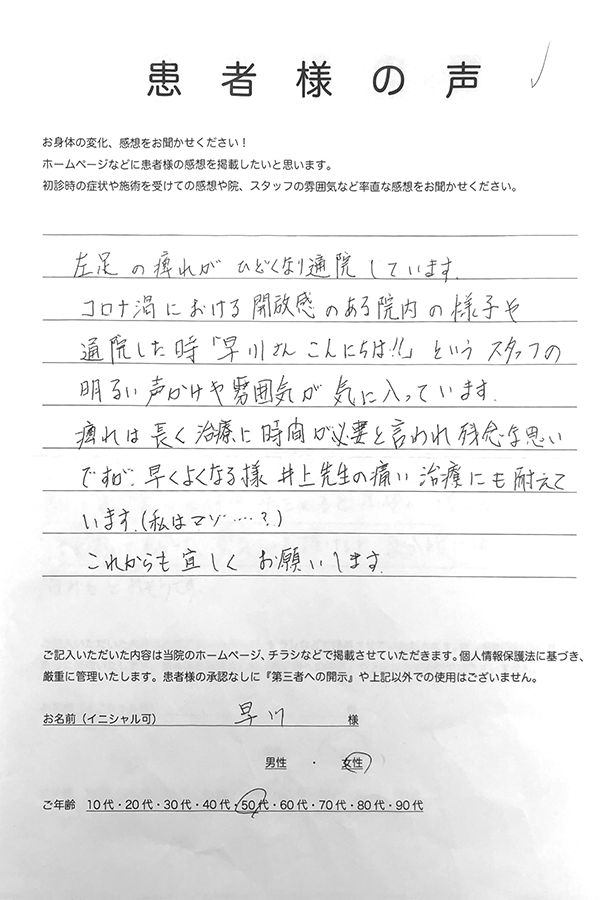 患者様の声
お身体の変化、感想をお聞かせください！
ホームページなどに患者様の感想を掲載したいと思います。
初診時の症状や施術を受けての感想や院、スタッフの雰囲気など率直な感想をお聞かせください。
左足の痺れがひどくなり通院しています。
コロナ渦における開放感のある院内の様子や
通院した時「早川さんこんにちは!!」というスタッフの
明るい声かけや雰囲気が気に入っています。
痺れは長く治療に時間が必要と言われ残念な思い
ですが、早くよくなる様井上先生の痛い治療にも耐えて
います。(私はマゾ……？)
これからも宜しくお願いします。
ご記入いただいた内容は当院のホームページ、チラシなどで掲載させていただきます。個人情報保護法に基づき、
厳重に管理いたします。患者様の承認なしに『第三者への開示』や上記以外での使用はございません。
お名前（イニシャル可） 早川 様
男性 ・ 女性
ご年齢 10代・20代・30代・40代・50代・60代・70代・80代・90代